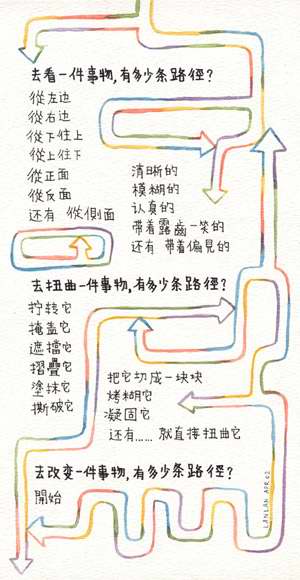 去看一件事物,有多少条路徑?
從左边
從右边
從下往上
從上往下
從正面
從反面
还有 從側面
清晰的
模糊的
认真的
带着露齒一笑的
还有 带着偏見的
去扭曲一件事物,有多少条路徑?
拧转它
掩盖它
遮擋它
摺疊它
塗抹它
撕破它
把它切成一块块
烤糊它
凝固它
还有…… 就直接扭曲它
去改变一件事物,有多少条路徑?
開始